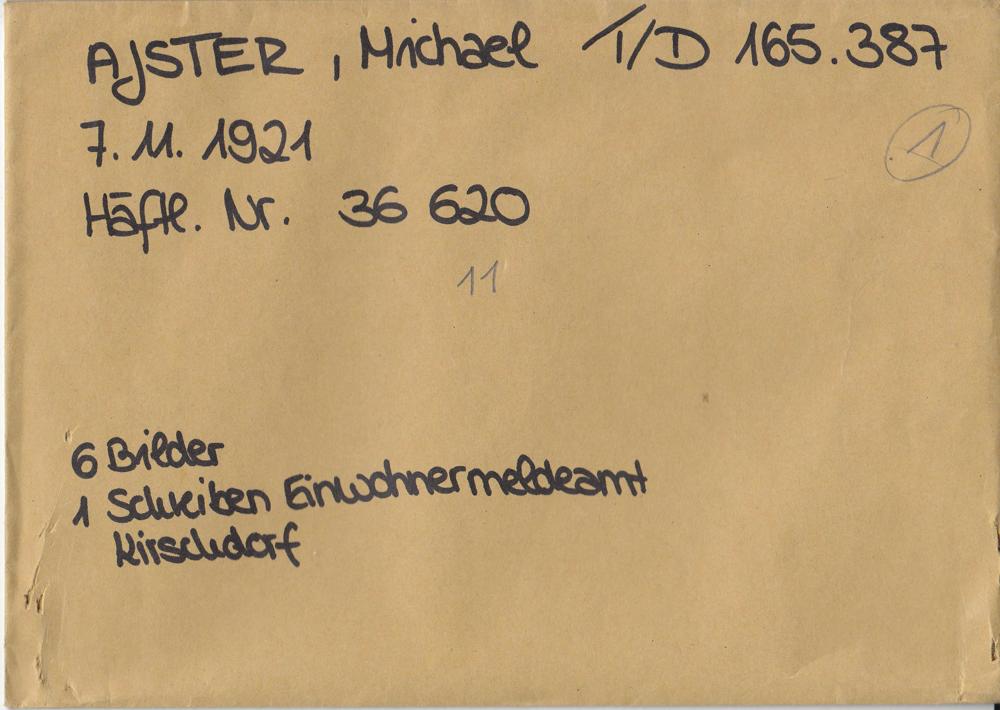 AJSTER, Michael T/D 165.387
7. 11. 1921
1
Häftl. Nr. 36 620
11
6 Bilder
1 Schreiben Einwohnermeldeamt
Kirschdorf